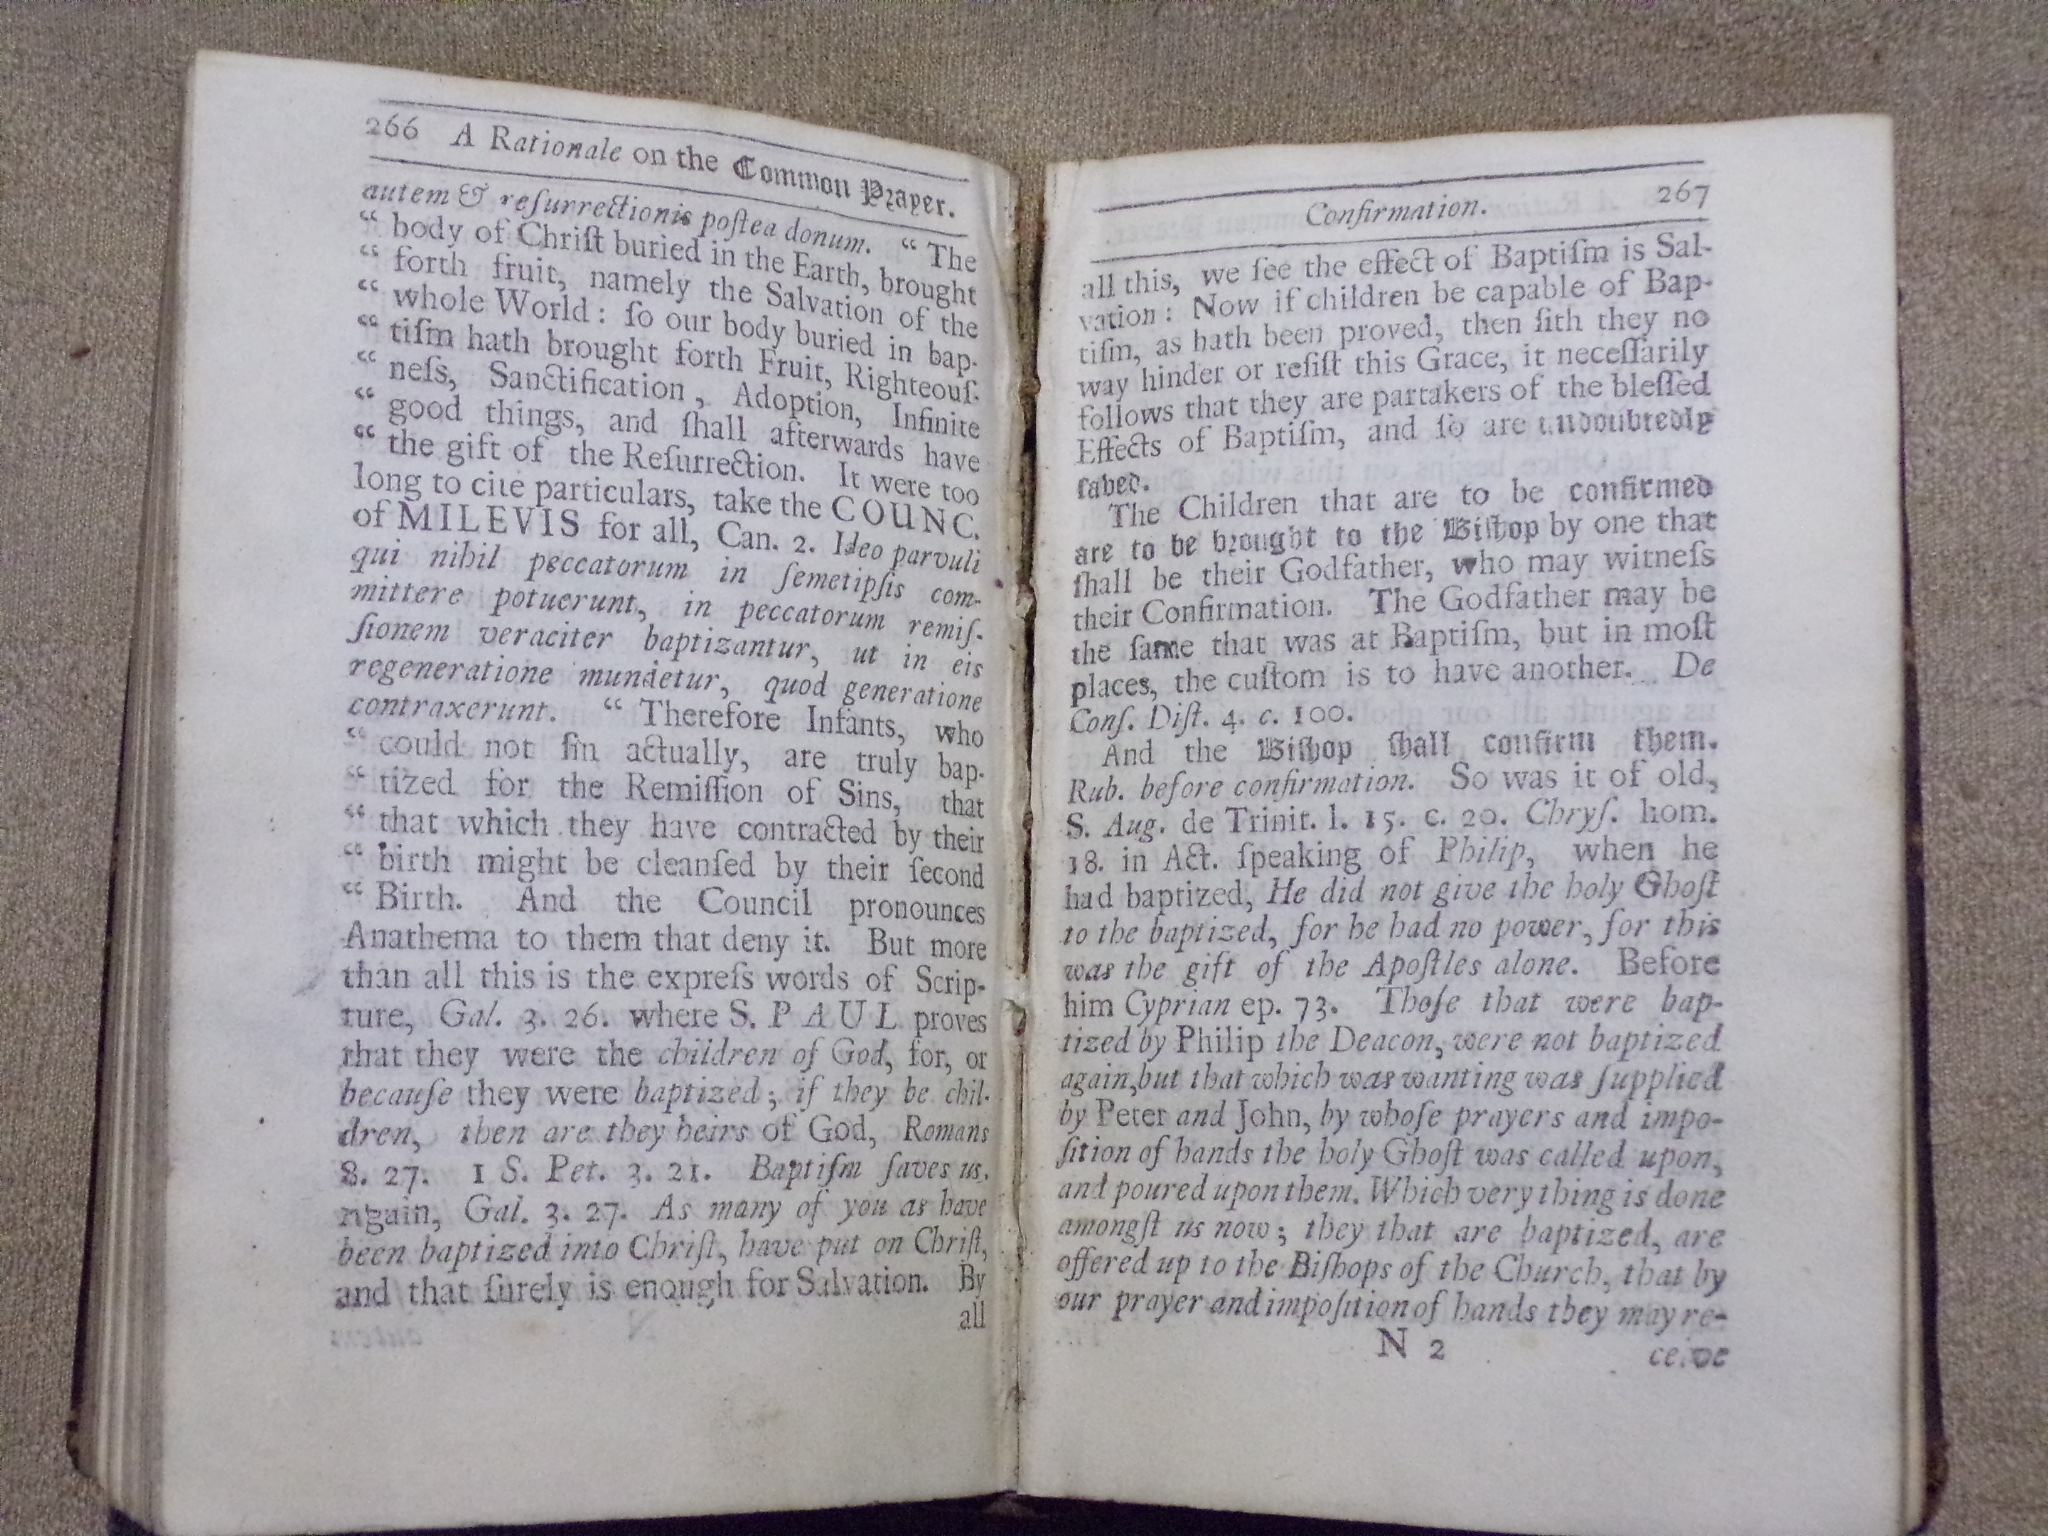 266 A Rationale on the Common Prayer.
autem & reſurrectionis poſtea donum. “ The
“ body of Chriſt buried in the Earth, brought
“ forth fruit, namely the Salvation of the
“ whole World : ſo our body buried in bap-
“ tiſm hath brought forth Fruit, Righteouſ-
“ neſs, Sanctification, Adoption, Infinite
“ good things, and ſhall afterwards have
“ the gift of the Reſurrection. It were too
long to cite particulars, take the COUNC.
of MILEVIS for all, Can. 2. Ideo parvuli
qui nihil peccatorum in ſemetipſis com-
mittere potuerunt, in peccatorum remiſ-
ſionem veraciter baptizantur, ut in eis
regeneratione mundetur, quod generatione
contraxerunt. “ Therefore Infants, who
“ could not ſin actually, are truly bap-
“ tized for the Remiſſion of Sins, that
“ that which they have contracted by their
“ birth might be cleanſed by their ſecond
“ Birth. And the Council pronounces
Anathema to them that deny it. But more
than all this is the expreſs words of Scrip-
ture, Gal. 3. 26. where S. PAUL proves
that they were the children of God, for, or
becauſe they were baptized ; if they be chil-
dren, then are they heirs of God, Romans
8. 27. 1 S. Pet. 3. 21. Baptiſm ſaves us.
Again, Gal. 3. 27. As many of you as have
been baptized into Chriſt, have put on Chriſt,
and that ſurely is enough for Salvation. By
all
Confirmation. 267
all this, we ſee the effect of Baptiſm is Sal-
vation : Now if children be capable of Bap-
tiſm, as hath been proved, then ſith they no
way hinder or reſiſt this Grace, it neceſſarily
follows that they are partakers of the bleſſed
Effects of Baptiſm, and ſo are undoubtedly
ſaved.
The Children that are to be confirmed
are to be brought to the Biſhop by one that
ſhall be their Godfather, who may witneſs
their Confirmation. The Godfather may be
the ſame that was at Baptiſm, but in moſt
places, the cuſtom is to have another. De
Conſ. Diſt. 4. c. 100.
And the Biſhop ſhall confirm them.
Rub. before confirmation. So was it of old,
S. Aug. de Trinit. l. 15. c. 20. Chryſ. hom.
18. in Act. ſpeaking of Philip, when he
had baptized, He did not give the holy Ghoſt
to the baptized, for he had no power, for this
was the gift of the Apoſtles alone. Before
him Cyprian ep. 73. Thoſe that were bap-
tized by Philip the Deacon, were not baptized
again, but that which was wanting was ſupplied
by Peter and John, by whoſe prayers and impo-
ſition of hands the holy Ghoſt was called upon,
and poured upon them. Which very thing is done
amongſt us now ; they that are baptized, are
offered up to the Biſhops of the Church, that by
our prayer and impoſition of hands they may re-
N 2 ceive